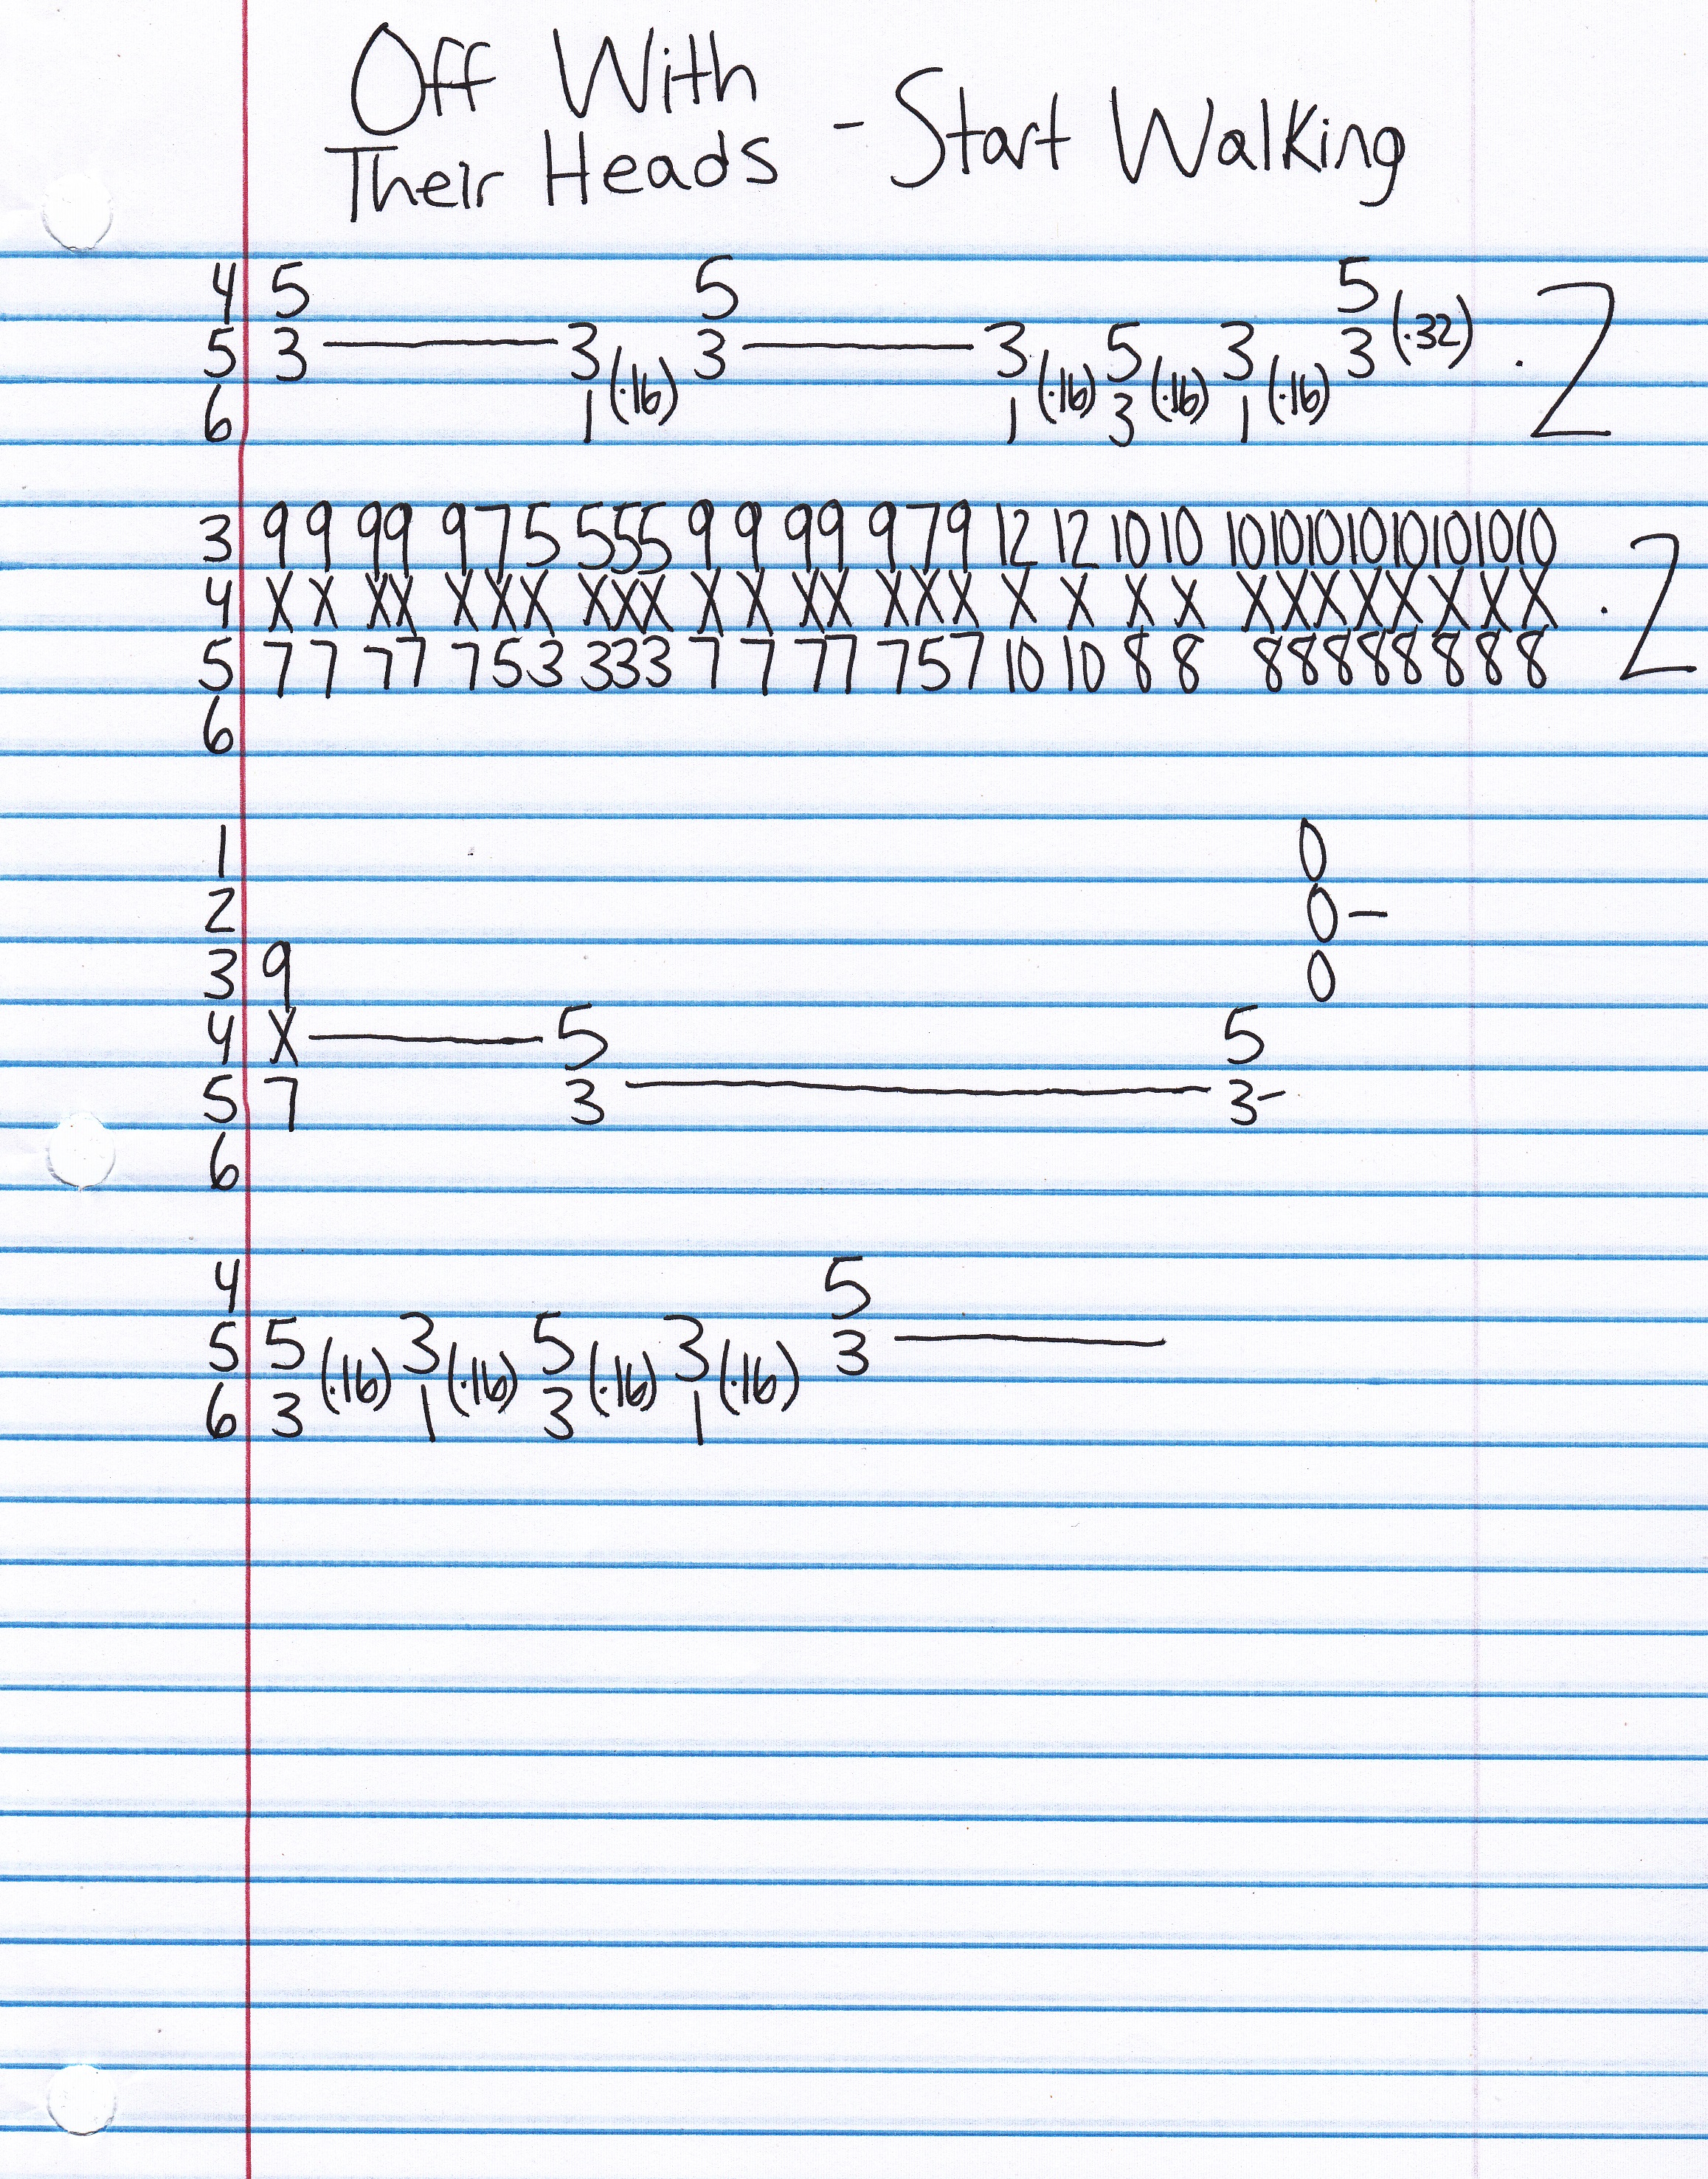 Off With
Their Heads - Start Walking
4 5 5 5
5 3 — 3 (·16) 3 — 3 (·16) 5 (·16) 3 (·16) 3 (·32) · 2
6 1 1 3 1
3 9 9 99 975 555 9 9 99 979 12 12 10 10 1010101010101010
4 X X XX XXX XXX X X XX XXX X X X X XXXXXXXX · 2
5 7 7 77 753 333 7 7 77 757 10 10 8 8 88888888
6
1 0
2 0 –
3 9 0
4 X — 5 5
5 7 3 — 3 -
6
4 5
5 5 (·16) 3 (·16) 5 (·16) 3 (·16) 3 —
6 3 1 3 1